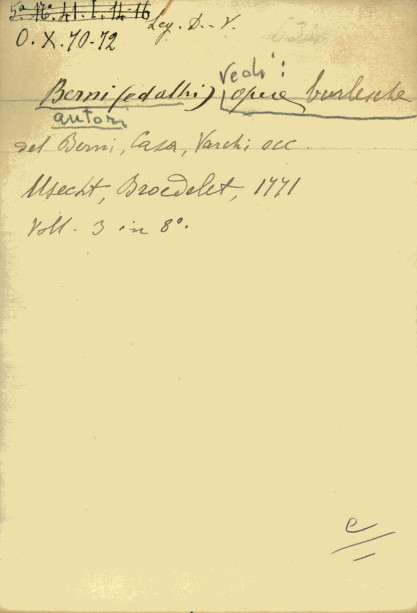 5ª Nº. 41. I. 14-16
Leg. D. V.
O. X. 70-72
vedi:
Berni (ed altri) opere burlesche
autori
del Berni, Casa, Varchi ecc
Utrecht, Broedelet, 1771
Voll. 3 in 8º.
e